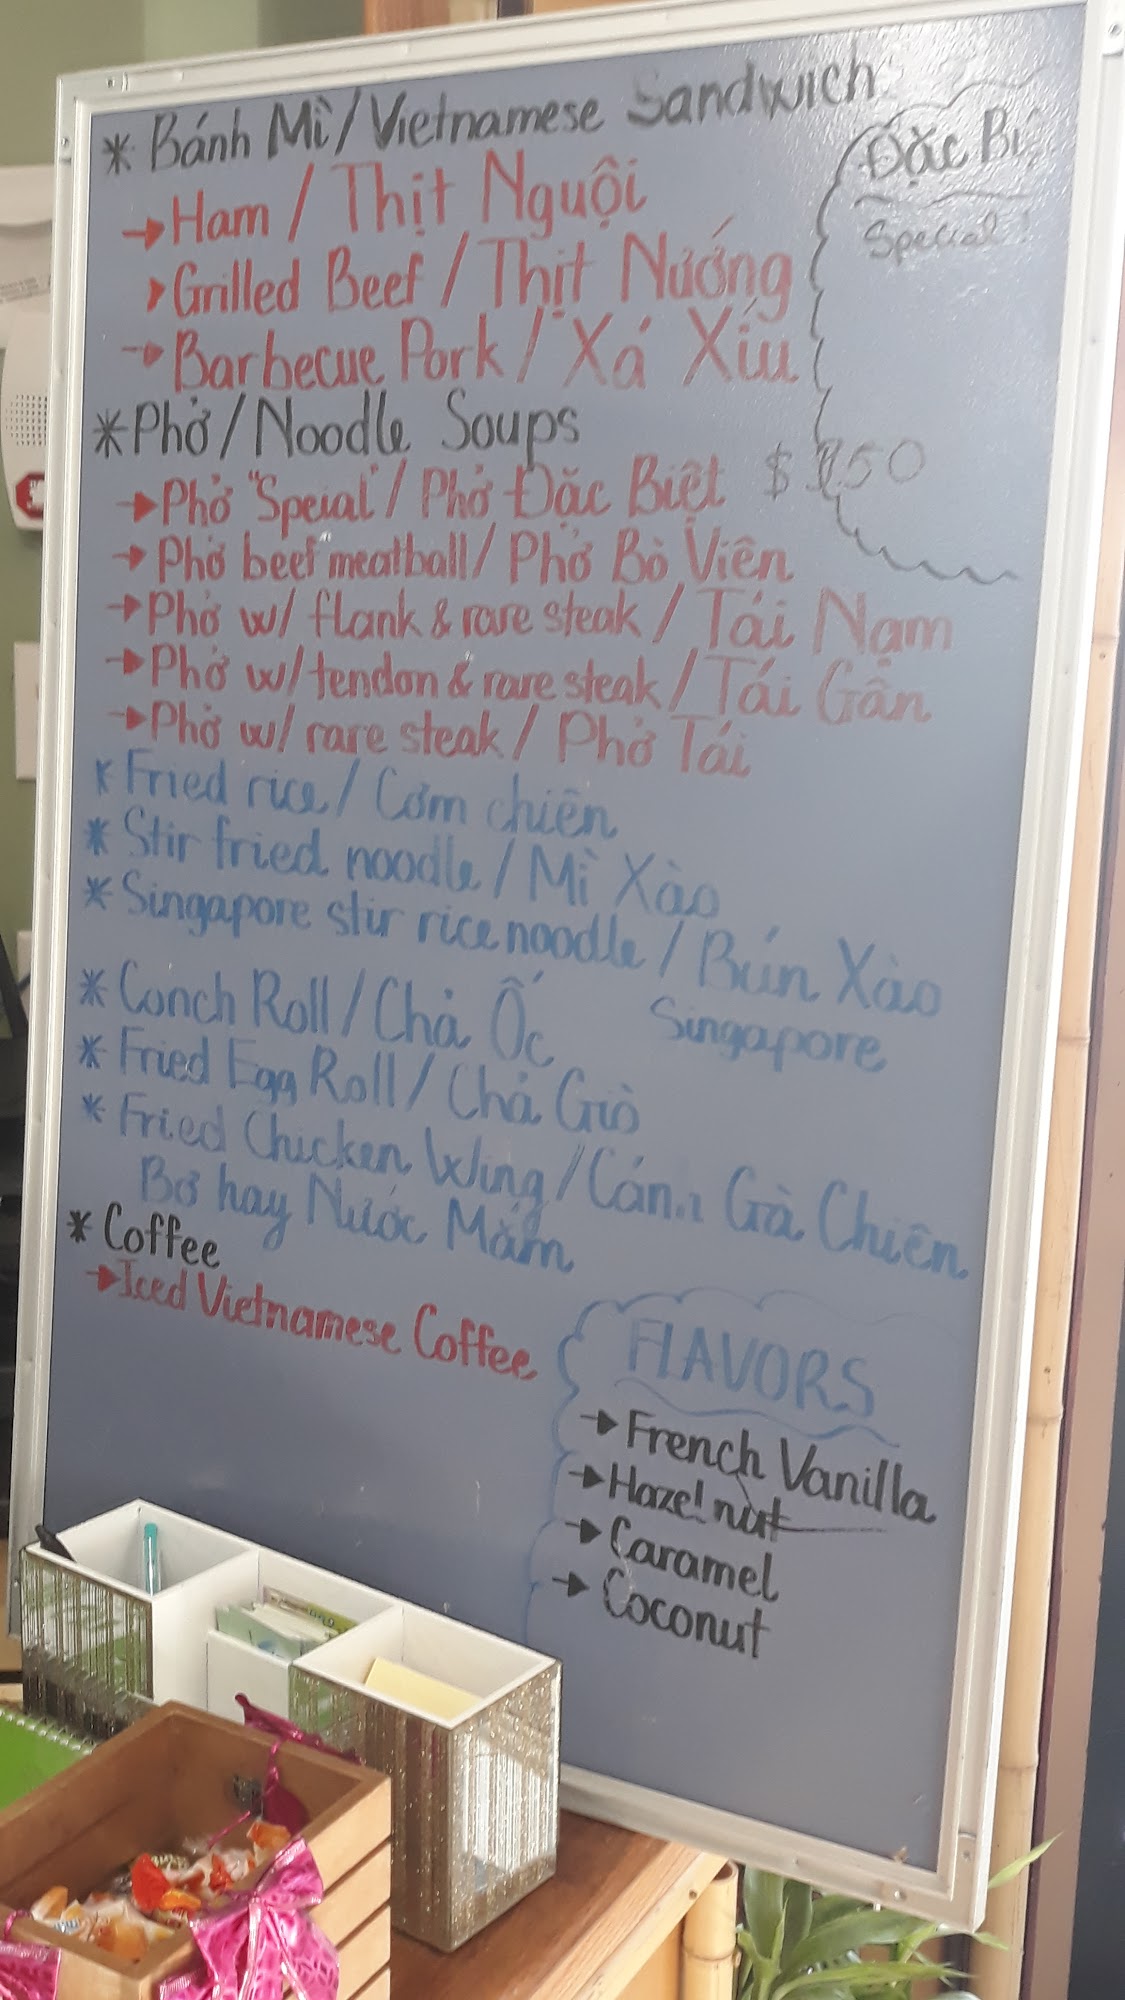 * Bánh Mì / Vietnamese Sandwich
→ Ham / Thịt Nguội
→ Grilled Beef / Thịt Nướng
→ Barbecue Pork / Xá Xíu
Đặc Bi
Special!
* Phở / Noodle Soups
→ Phở "Speial" / Phở Đặc Biệt
→ Phở beef meatball / Phở Bò Viên
→ Phở w/ flank & rare steak / Tái Nạm
→ Phở w/ tendon & rare steak / Tái Gân
→ Phở w/ rare steak / Phở Tái
* Fried rice / Cơm chiên
* Stir fried noodle / Mì Xào
* Singapore stir rice noodle / Bún Xào
Singapore
* Conch Roll / Chả Ốc
* Fried Egg Roll / Chả Giò
* Fried Chicken Wing / Cánh Gà Chiên
Bơ hay Nước Mắm
* Coffee
→ Iced Vietnamese Coffee
FLAVORS
→ French Vanilla
→ Hazelnut
→ Caramel
→ Coconut